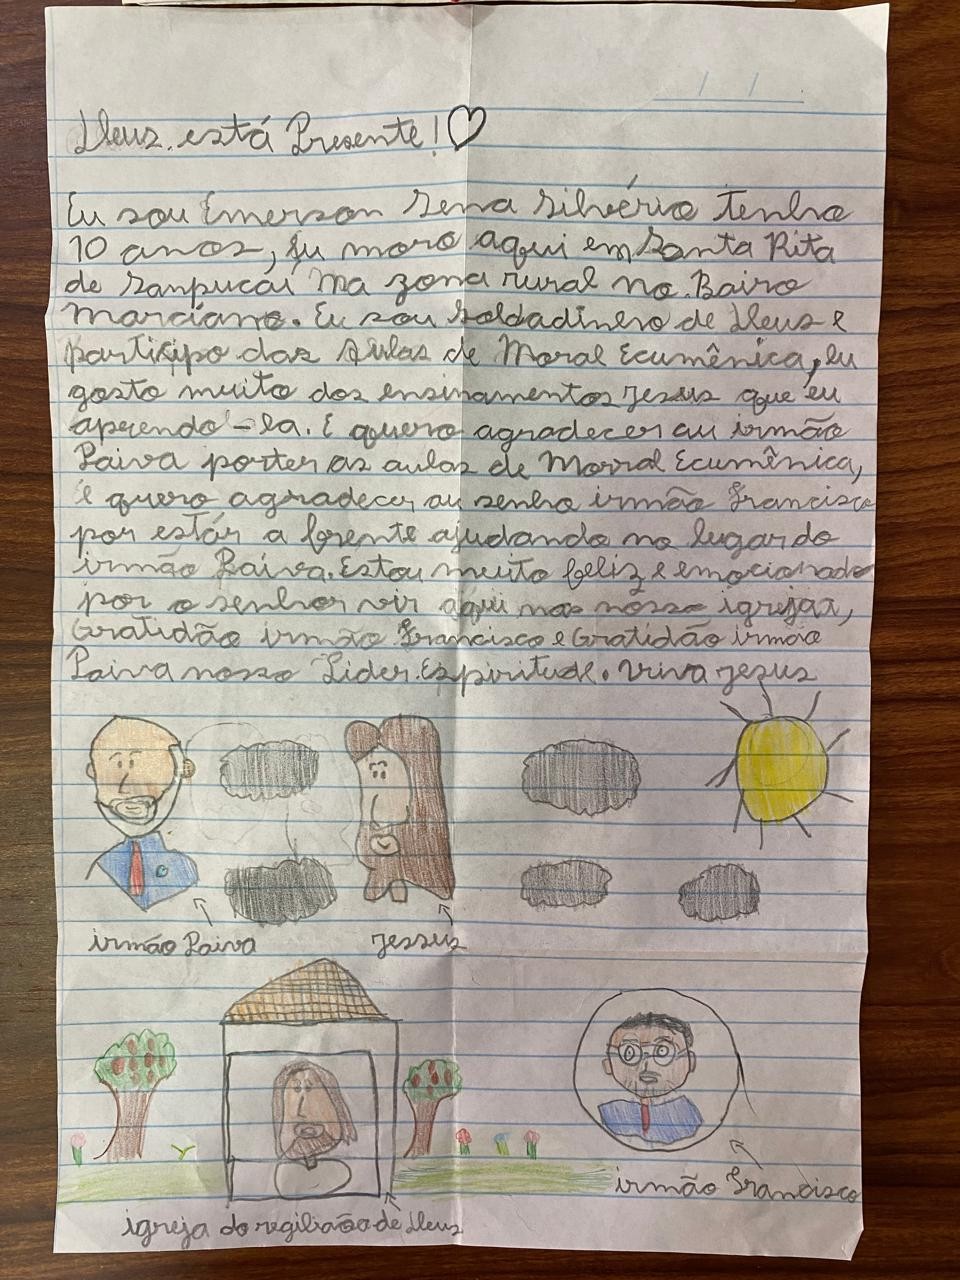 Deus. está Presente!
Eu sou Emerson Sena Silvério tenho
10 anos, Eu moro aqui em Santa Rita
de Sanpucaí Na zona rural no. Bairo
Marciano. Eu sou Soldadinho de Deus e
participo das Aulas de Moral Ecumênica, Eu
gosto muito dos ensinamentos Jesus que eu
aprendo -la. E quero agradecer au irmão
Paiva porter as aulas de Morral Ecumênica,
E quero agradecer au senho irmão Francisco
por estár a frente ajudando no lugar do
irmão Paiva. Estou muito feliz e emocionado
por o senhor vir aqui nas nossa igrejar,
Gratidão irmão Francisco e Gratidão irmão
Paiva nosso Lider. Espiritude. Viva Jesus
irmão Paiva
Jessus
irmão Francisco
igreja do regiliaão de Deus